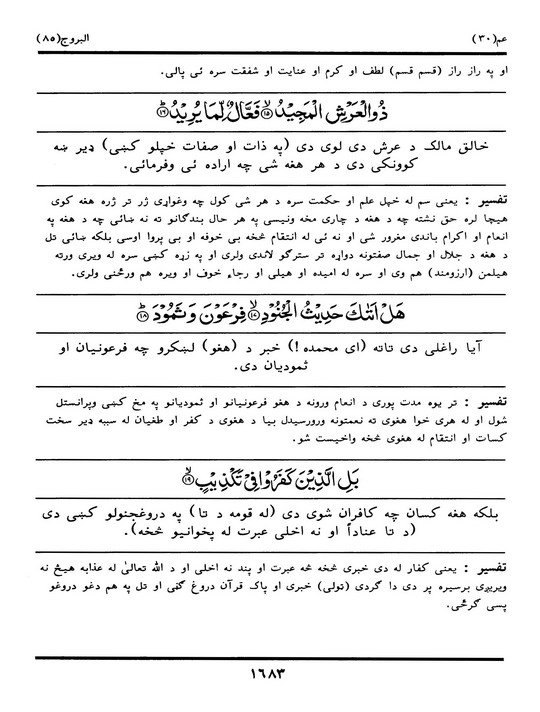 عم(٣٠) البروج(٨٥)
او په راز راز (قسم قسم) لطف او كرم او عنايت او شفقت سره ئې پالى.
ذُو الْعَرْشِ الْمَجِيْدُ ﴿١٥﴾ فَعَّالٌ لِّمَا يُرِيْدُ ﴿١٦﴾
خالق مالك د عرش دى لوى دى (په ذات او صفات خپلو كښى) ډير ښه
كوونكى دى د هر هغه شى چه اراده ئى وفرمائى.
تفسير : يعنى سم له خپل علم او حكمت سره د هر شى كول چه وغواړى ژر تر ژره هغه كوى
هيچا لره حق نشته چه د هغه د چارى مخه ونيسى په هر حال بندگانو ته نه ښائى چه د هغه په
انعام او اكرام باندى مغرور شى او نه ئى له انتقام څخه بى خوفه او بى پروا اوسى بلكه ښائى تل
د هغه د جلال او جمال صفتونه دواړه تر سترگو لاندى ولرى او په زړه كښى سره له ويرى ورته
هيلمن (ارزومند) هم وى او سره له اميده او هيلى او رجاء خوف او ويره هم ورځنى ولرى.
هَلْ اَتٰىكَ حَدِيْثُ الْجُنُوْدِ ﴿١٧﴾ فِرْعَوْنَ وَثَمُوْدَ ﴿١٨﴾
آيا راغلى دى تاته (اى محمده!) خبر د (هغو) لښكرو چه فرعونيان او
ثموديان دى.
تفسير : تر يوه مدت پورى د انعام ورونه د هغو فرعونيانو او ثموديانو په مخ كښى وپرانستل
شول او له هرى خوا هغوى ته نعمتونه ورورسيدل بيا د هغوى د كفر او طغيان له سببه ډير سخت
كسات او انتقام له هغوى څخه واخيست شو.
بَلِ الَّذِيْنَ كَفَرُوْا فِيْ تَكْذِيْبٍ ﴿١٩﴾
بلكه هغه كسان چه كافران شوى دى (له قومه د تا) په دروغجنولو كښى دى
(د تا عناداً او نه اخلى عبرت له پخوانيو څخه).
تفسير : يعنى كفار له دى خبرى څخه څه عبرت او پند نه اخلى او د الله تعالىٰ له عذابه هيڅ نه
ويريږى برسيره پر دى دا گردى (ټولى) خبرى او پاك قرآن دروغ گڼى او تل په هم دغو دروغو
پسى گرځى.
١٦٨٣